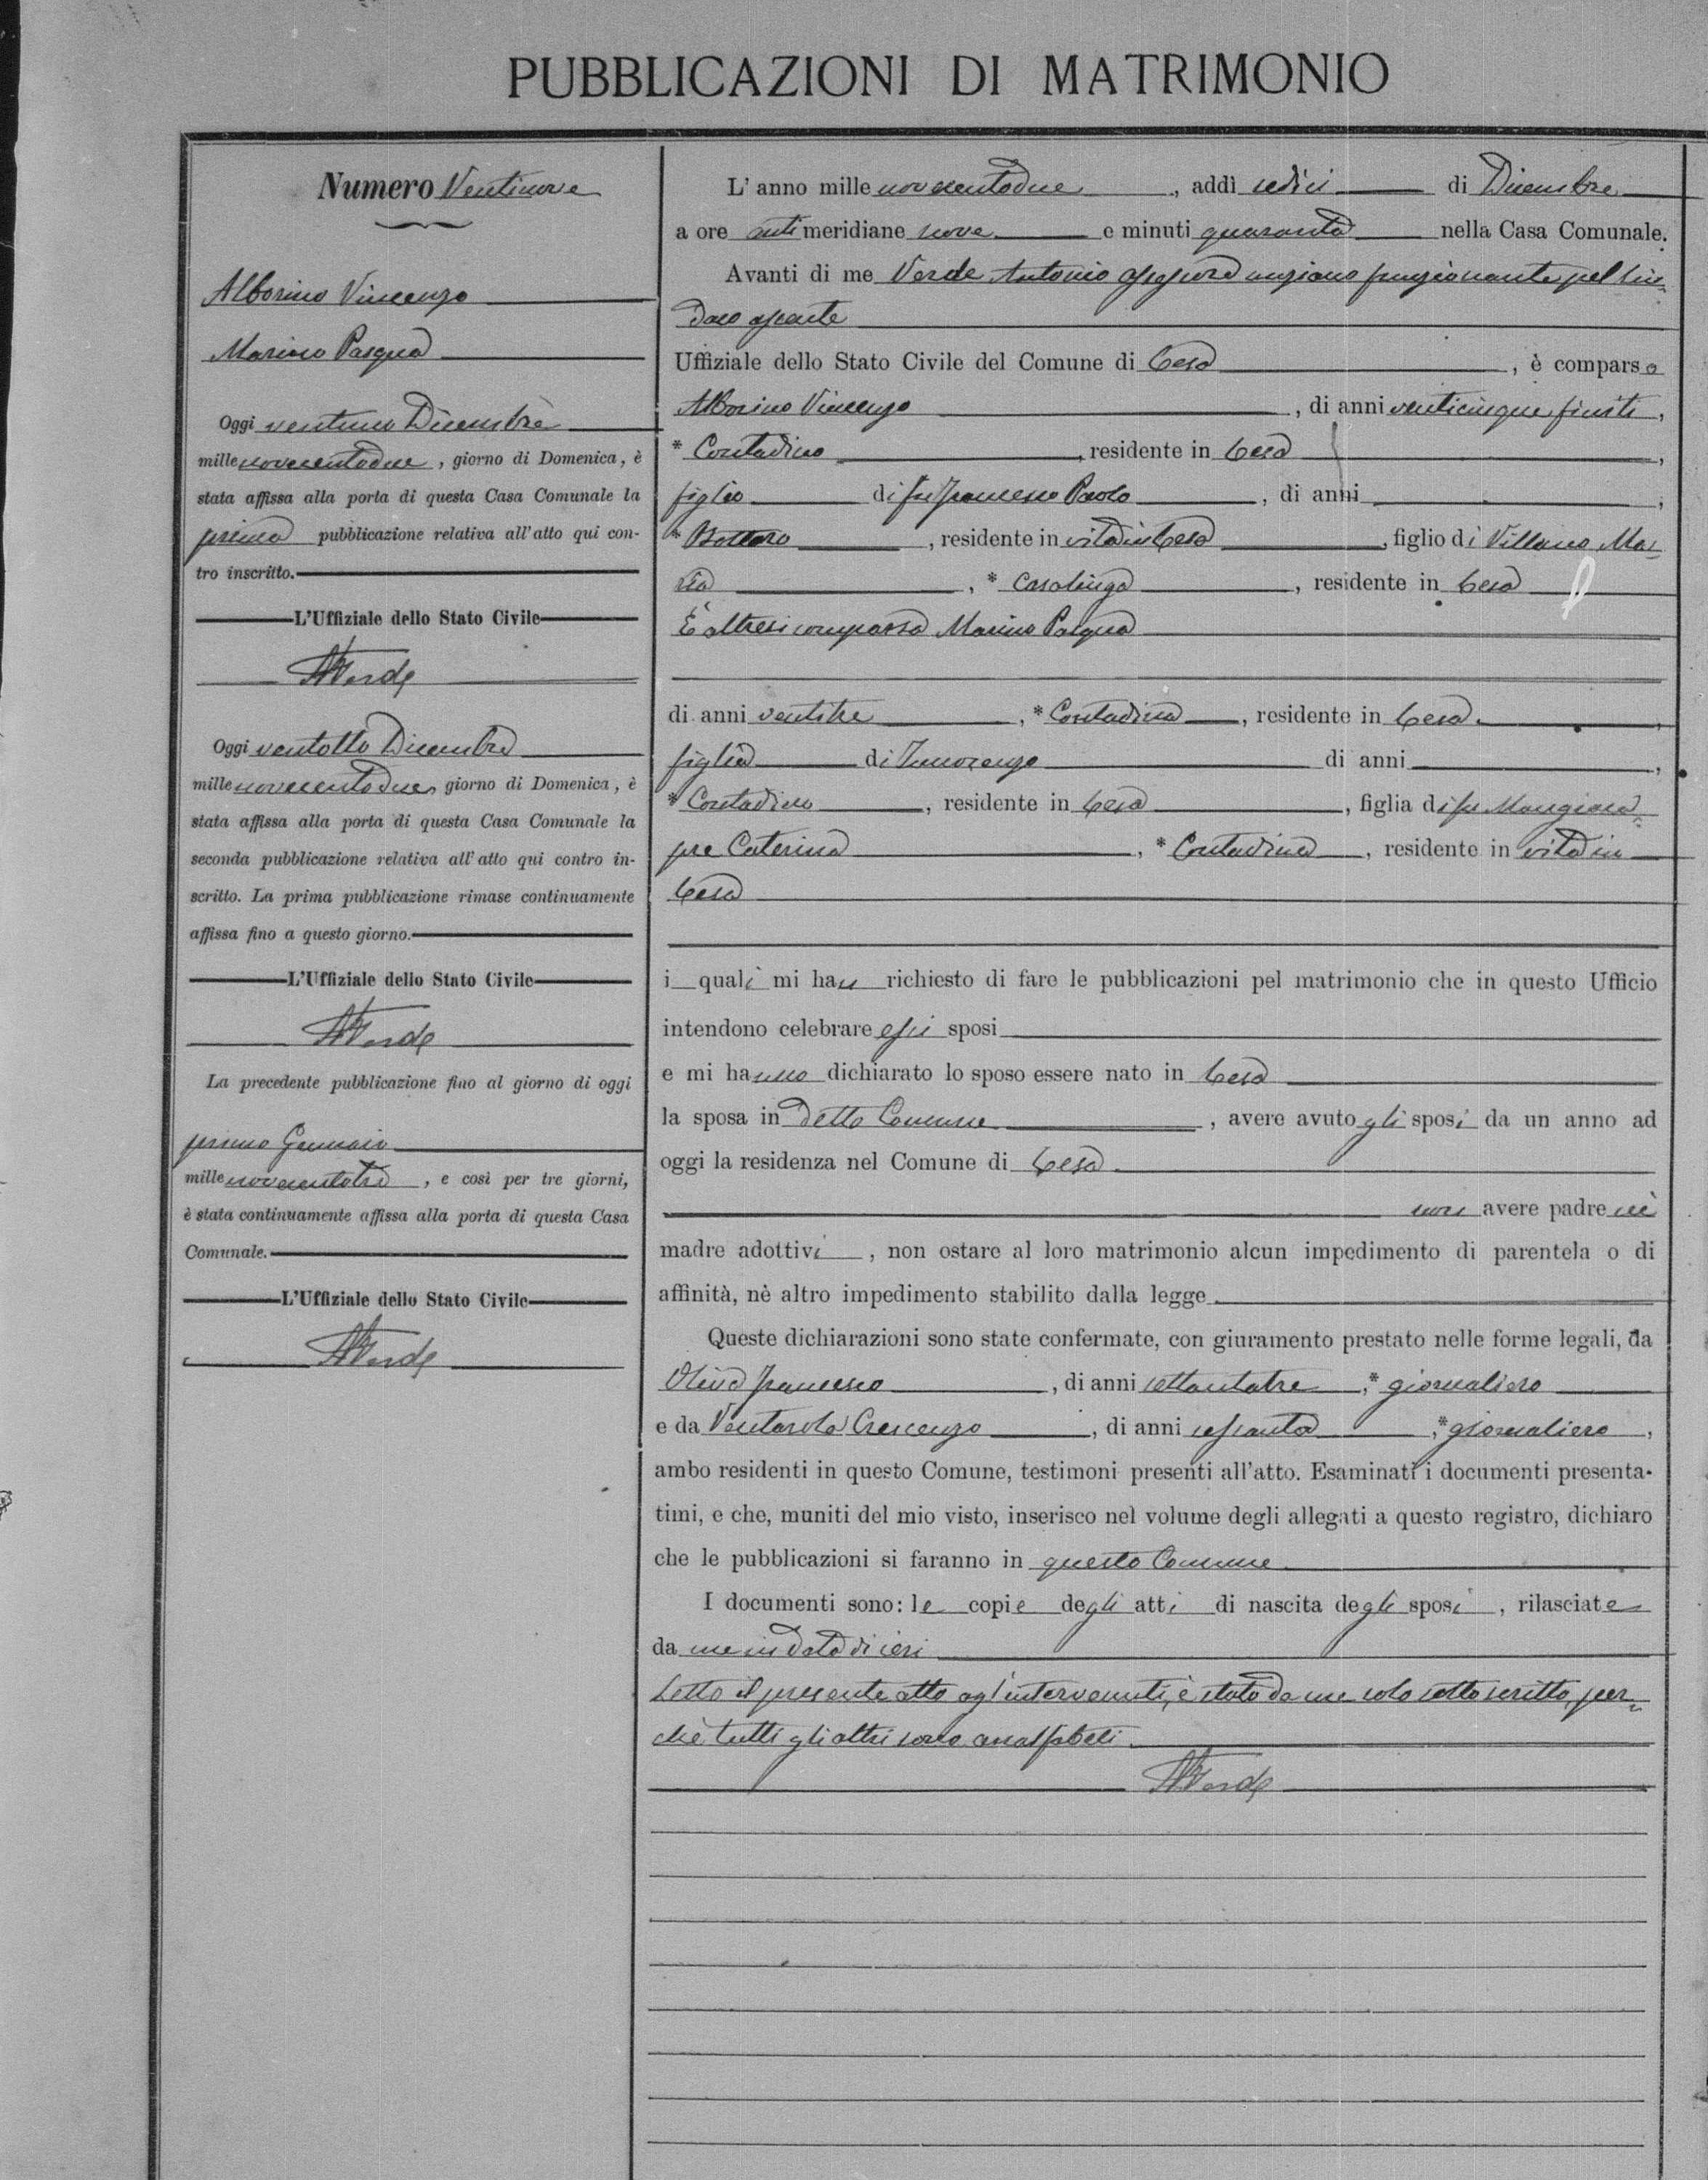 PUBBLICAZIONI DI MATRIMONIO
Numero Ventinove
Alborino Vincenzo
Marino Pasqua
Oggi ventuno Dicembre
mille novecentodue, giorno di Domenica, è
stata affissa alla porta di questa Casa Comunale la
prima pubblicazione relativa all'atto qui con-
tro inscritto.
L'Uffiziale dello Stato Civile
AVerde
Oggi ventotto Dicembre
mille novecentodue, giorno di Domenica, è
stata affissa alla porta di questa Casa Comunale la
seconda pubblicazione relativa all'atto qui contro in-
scritto. La prima pubblicazione rimase continuamente
affissa fino a questo giorno.
L'Uffiziale dello Stato Civile
AVerde
La precedente pubblicazione fino al giorno di oggi
primo Gennaio
mille novecentotre, e così per tre giorni,
è stata continuamente affissa alla porta di questa Casa
Comunale.
L'Uffiziale dello Stato Civile
AVerde
L'anno mille novecentodue, addì sedici di Dicembre
a ore antimeridiane nove e minuti quaranta nella Casa Comunale.
Avanti di me Verde Antonio assessore anziano funzionante pel Sin-
daco assente
Uffiziale dello Stato Civile del Comune di Cesa, è comparso
Alborino Vincenzo, di anni venticinque finiti,
* Contadino, residente in Cesa,
figlio di fu Francesco Paolo, di anni ,
* Bottaro, residente in vita in Cesa, figlio di Villano Ma-
ria, * Casalinga, residente in Cesa
È altresì comparsa Marino Pasqua
di anni ventitre, * Contadina, residente in Cesa,
figlia di Innocenzo di anni ,
* Contadino, residente in Cesa, figlia di fu Mangiaca-
pre Caterina, * Contadina, residente in vita in
Cesa
i quali mi han richiesto di fare le pubblicazioni pel matrimonio che in questo Ufficio
intendono celebrare essi sposi
e mi hanno dichiarato lo sposo essere nato in Cesa
la sposa in detto Comune, avere avuto gli sposi da un anno ad
oggi la residenza nel Comune di Cesa
non avere padre nè
madre adottivi, non ostare al loro matrimonio alcun impedimento di parentela o di
affinità, nè altro impedimento stabilito dalla legge
Queste dichiarazioni sono state confermate, con giuramento prestato nelle forme legali, da
Oliva Francesco, di anni settantatre, * giornaliero
e da Ventarola Crescenzo, di anni sessanta, * giornaliero,
ambo residenti in questo Comune, testimoni presenti all'atto. Esaminati i documenti presenta-
timi, e che, muniti del mio visto, inserisco nel volume degli allegati a questo registro, dichiaro
che le pubblicazioni si faranno in questo Comune
I documenti sono: le copie degli atti di nascita degli sposi, rilasciate
da me in data di ieri
Letto il presente atto agl'intervenuti, è stato da me solo sottoscritto, per-
chè tutti gli altri sono analfabeti.
AVerde